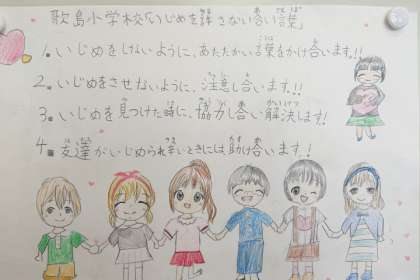 歌島小学校いじめを許さない合い言葉
1.いじめをしないように、あたたかい言葉をかけ合います。!!
2.いじめをさせないように、注意し合います。!!
3.いじめを見つけた時に、協力し合い解決します!
4.友達がいじめられたときには助け合います!